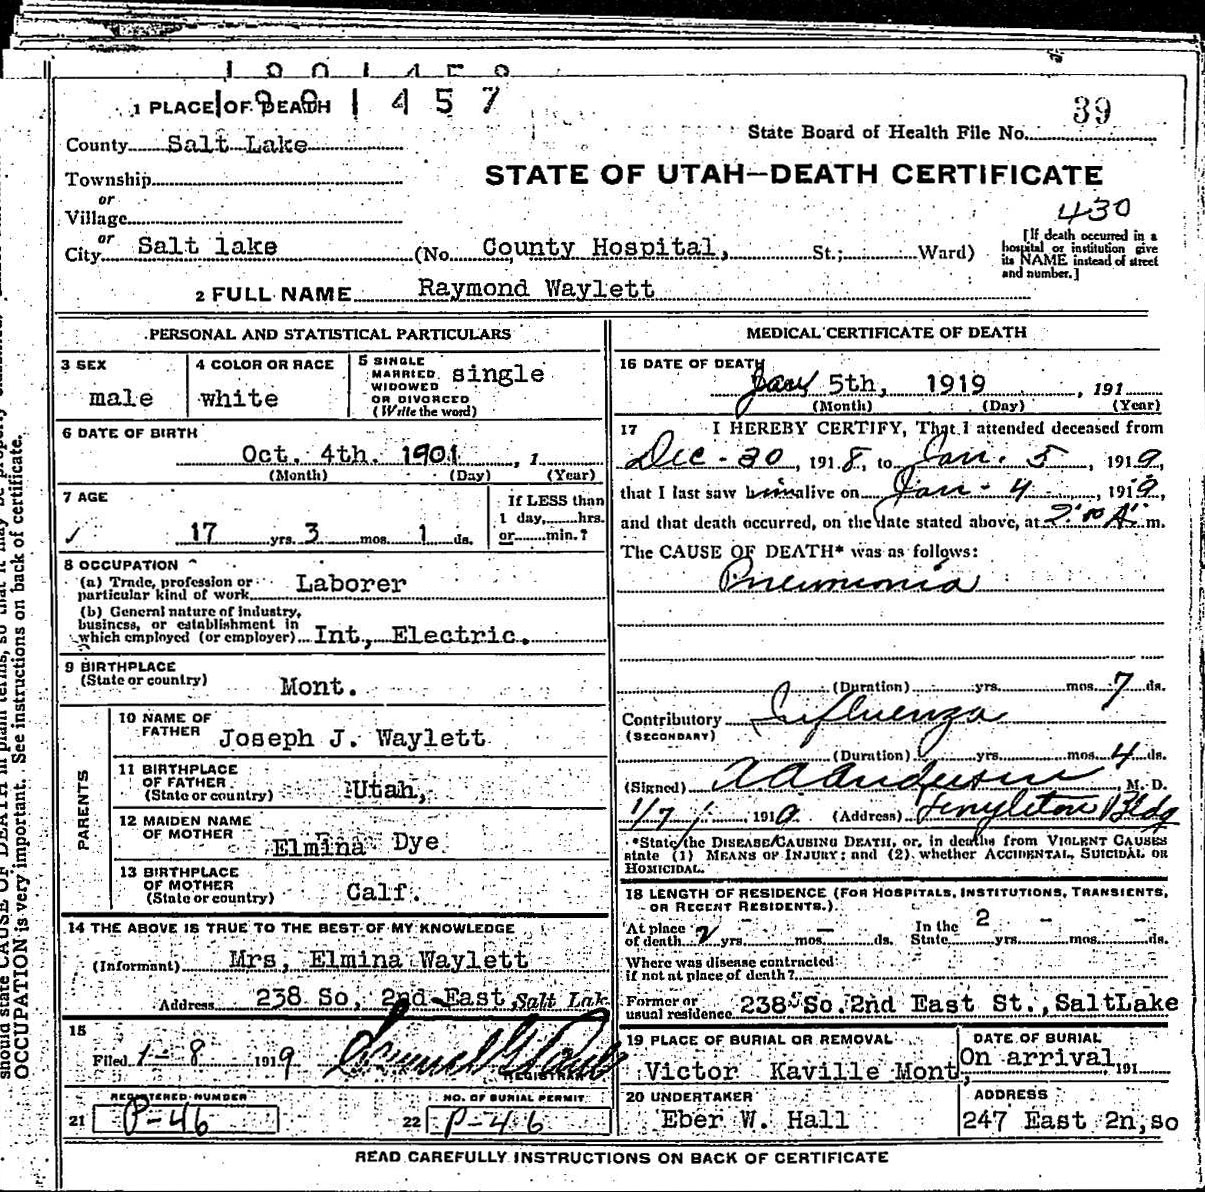 1901457
1 PLACE OF DEATH
39
State Board of Health File No.
County Salt Lake
STATE OF UTAH—DEATH CERTIFICATE
Township
or
Village
430
or
City Salt lake (No. County Hospital, St.; Ward)
[If death occurred in a hospital or institution give its NAME instead of street and number.]
2 FULL NAME Raymond Waylett
PERSONAL AND STATISTICAL PARTICULARS
3 SEX
male
4 COLOR OR RACE
white
5 SINGLE
MARRIED
WIDOWED
OR DIVORCED
(Write the word)
single
6 DATE OF BIRTH
Oct. 4th. 1901, 1
(Month) (Day) (Year)
7 AGE
17 yrs. 3 mos. 1 ds.
If LESS than
1 day, hrs.
or min.?
8 OCCUPATION
(a) Trade, profession or
particular kind of work Laborer
(b) General nature of industry,
business, or establishment in
which employed (or employer) Int, Electric.
9 BIRTHPLACE
(State or country) Mont.
PARENTS
10 NAME OF
FATHER Joseph J. Waylett
11 BIRTHPLACE
OF FATHER
(State or country) Utah,
12 MAIDEN NAME
OF MOTHER Elmina Dye
13 BIRTHPLACE
OF MOTHER
(State or country) Calf.
14 THE ABOVE IS TRUE TO THE BEST OF MY KNOWLEDGE
(Informant) Mrs, Elmina Waylett
Address 238 So, 2nd East, Salt Lak
15
Filed 1-8 1919
REGISTRAR
REGISTERED NUMBER
21 P-46
NO. OF BURIAL PERMIT
22 P-46
MEDICAL CERTIFICATE OF DEATH
16 DATE OF DEATH
Jany 5th, 1919, 191
(Month) (Day) (Year)
17 I HEREBY CERTIFY, That I attended deceased from
Dec - 30, 1918, to Jan. 5, 1919,
that I last saw him alive on Jan - 4, 1919,
and that death occurred, on the date stated above, at 2:00 A. m.
The CAUSE OF DEATH* was as follows:
Pneumonia
(Duration) yrs. mos. 7 ds.
Contributory Influenza
(SECONDARY)
(Duration) yrs. mos. 4 ds.
(Signed) A A Anderson M. D.
1/7, 1919 (Address) Templeton Bldg
*State the DISEASE CAUSING DEATH, or, in deaths from VIOLENT CAUSES
state (1) MEANS OF INJURY; and (2) whether ACCIDENTAL, SUICIDAL OR
HOMICIDAL.
18 LENGTH OF RESIDENCE (FOR HOSPITALS, INSTITUTIONS, TRANSIENTS,
OR RECENT RESIDENTS.)
At place
of death 2 yrs. - mos. - ds. In the
State 2 yrs. - mos. - ds.
Where was disease contracted
if not at place of death?
Former or
usual residence 238 So. 2nd East St., SaltLake
19 PLACE OF BURIAL OR REMOVAL
Victor Kaville Mont,
DATE OF BURIAL
On arrival, 191
20 UNDERTAKER
Eber W. Hall
ADDRESS
247 East 2n, so
READ CAREFULLY INSTRUCTIONS ON BACK OF CERTIFICATE
should state CAUSE OF DEATH in plain terms, so that it may be
OCCUPATION is very important. See instructions on back of certificate.